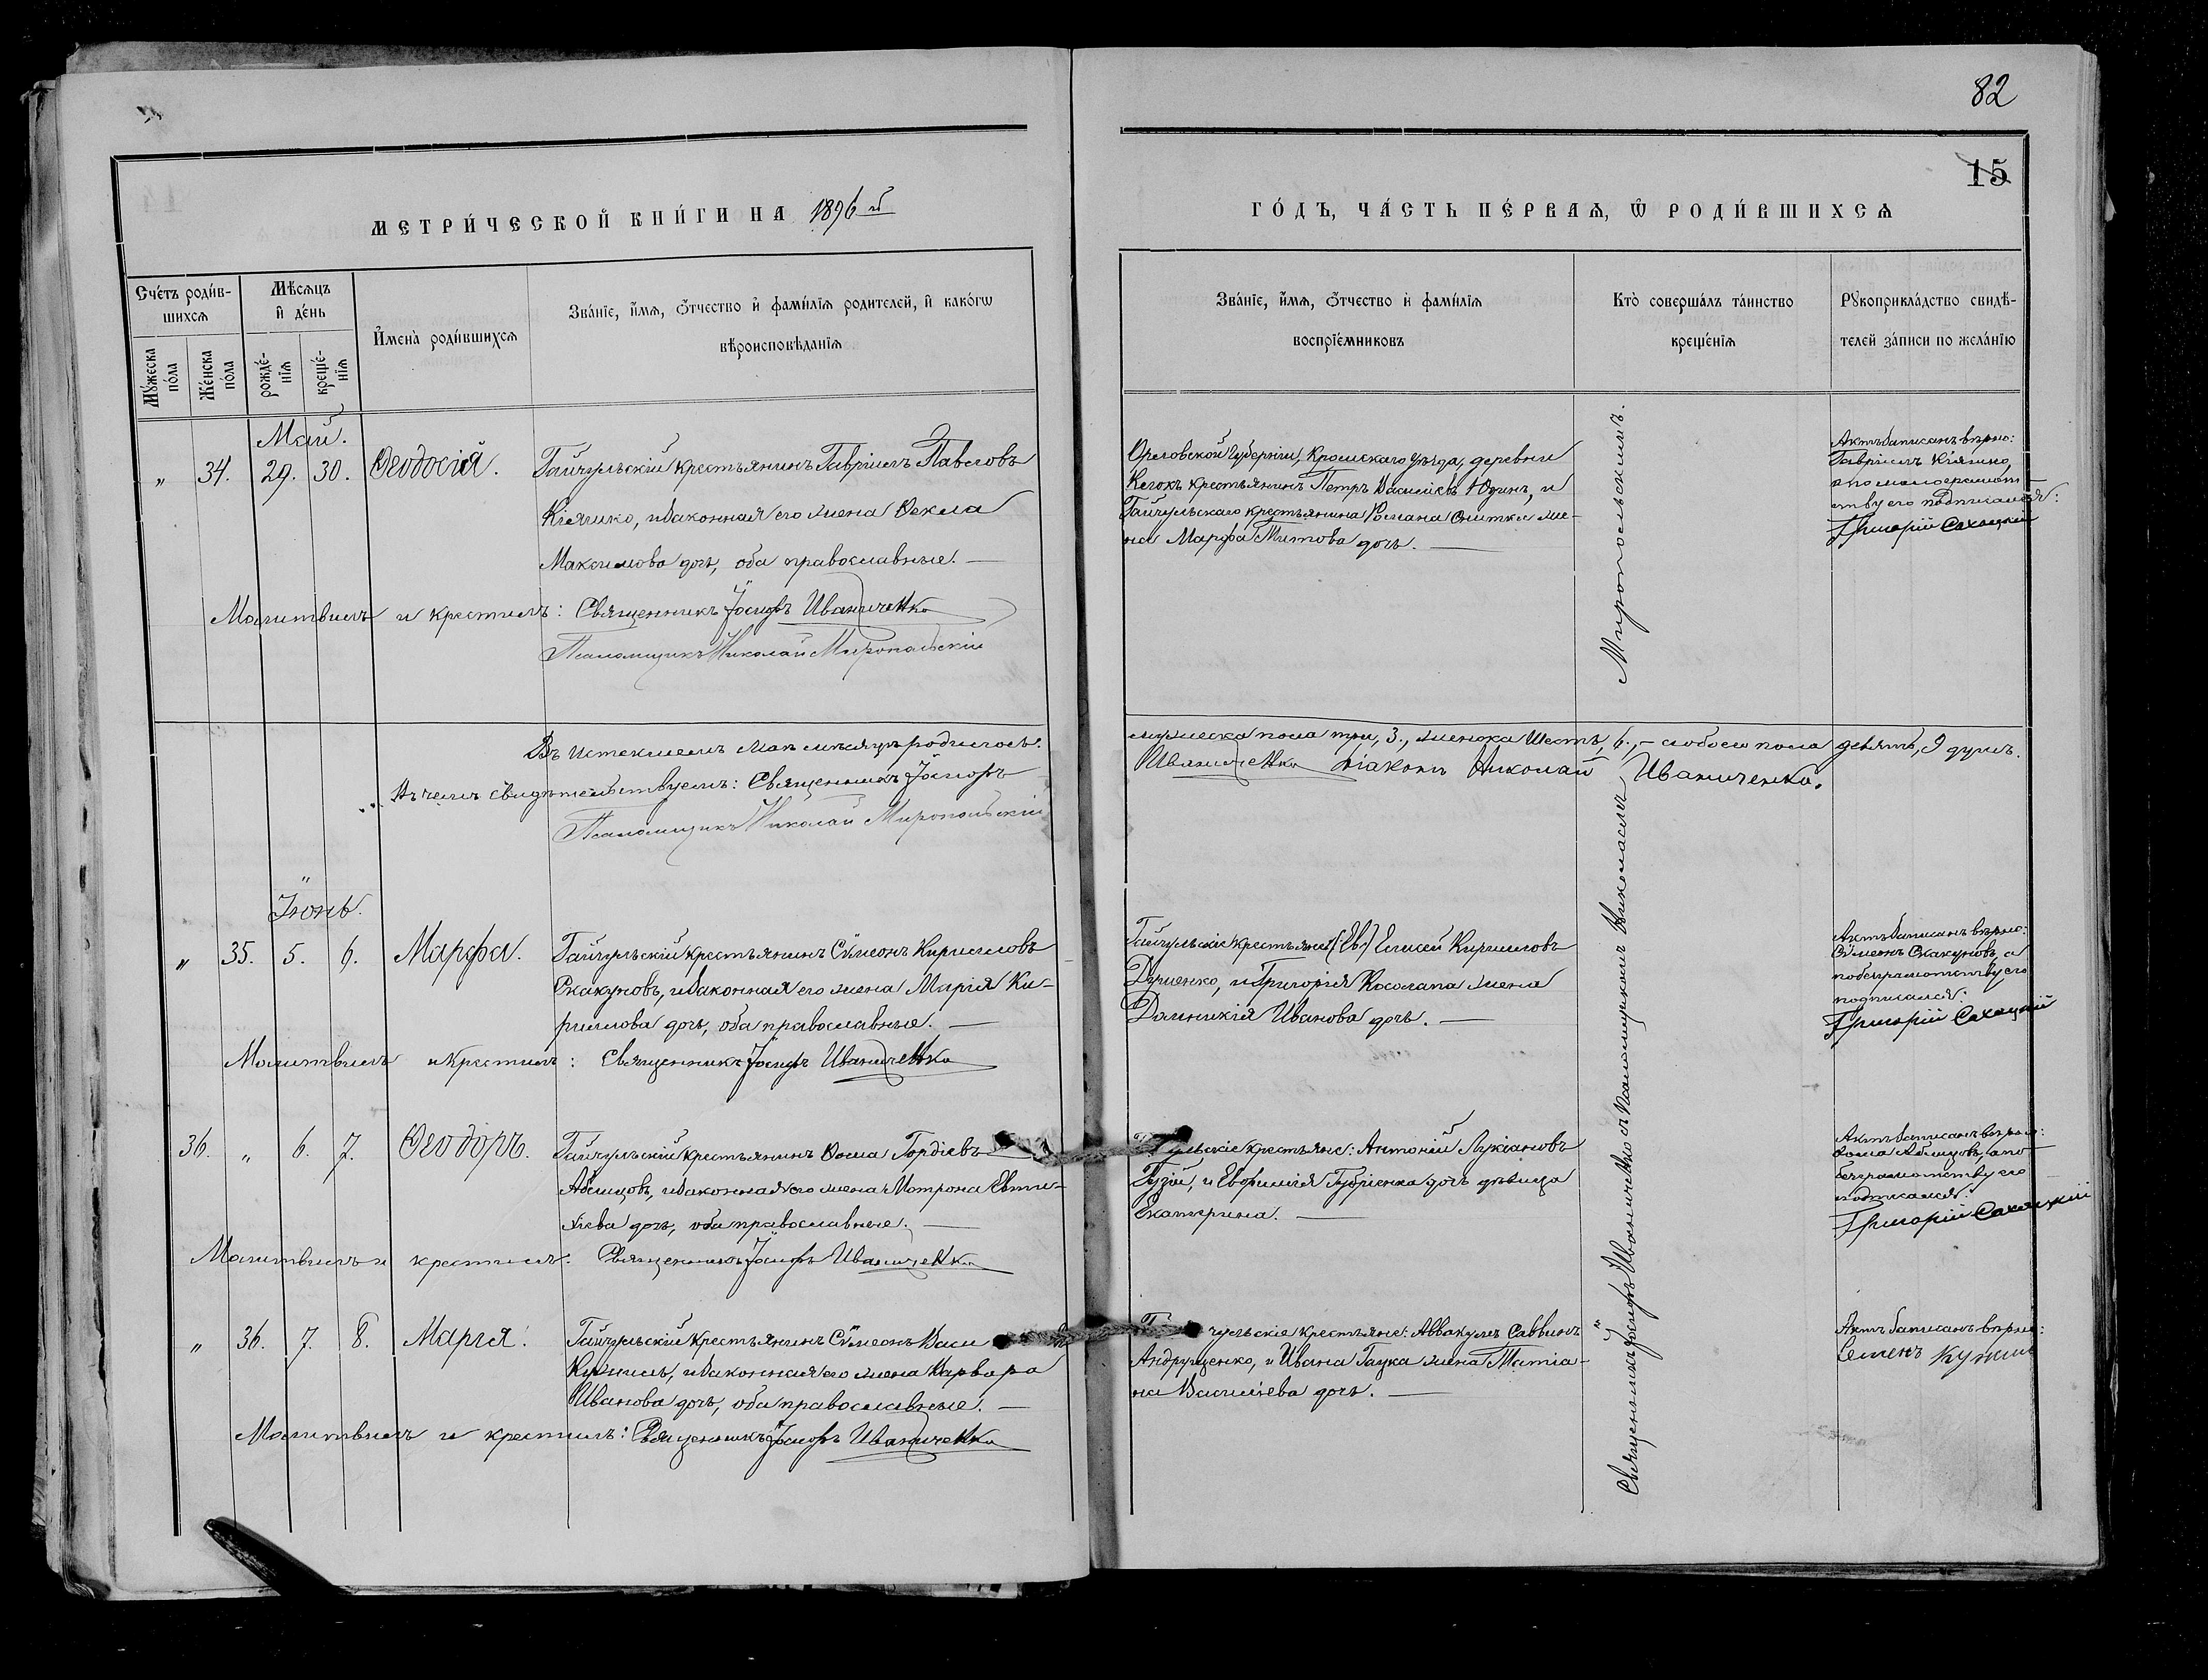 82
15
МЕТРИ́ЧЕСКОЙ КНИ́ГИ НА 1896 й
ГО́ДЪ, ЧА́СТЬ ПЕ́РВАѦ, Ѿ РОДИ́ВШИХСѦ
Сче́тъ роди́в-
шихсѧ
Мꙋ́жеска по́ла
Же́нска по́ла
Мѣ́сѧцъ
и҆ де́нь
рожде́-
нїѧ
креще́-
нїѧ
И҆мена̀ роди́вшихсѧ
Зва́нїе, и҆́мѧ, ѻ҆́тчество и҆ фами́лїѧ родителей, и҆ како́гѡ
вѣроисповѣ́данїѧ
Зва́нїе, и҆́мѧ, ѻ҆́тчество и҆ фами́лїѧ
воспрїе́мниковъ
Кто̀ соверша́лъ та́инство
креще́нїѧ
Рꙋкоприкла́дство свидѣ́-
телей за́писи по жела́нїю
Май.
" 34. 29. 30. Ѳеодосія.
Гайчульскій крестьянинъ Гавріилъ Павловъ
Кіяшко, и законная его жена Ѳекла
Максимова дочь, оба православные. —
Молитвилъ и крестилъ: Священникъ Іосифъ Иваниченко
Псаломщикъ Николай Миропольскій
Орловской Губерніи, Кромскаго уѣзда, деревни
крестьянинъ Петръ Василіевъ Юдинъ, и
Гайчульскаго крестьянина Романа Снитки же-
на Марфа Титова дочь. —
Актъ записанъ вѣрно:
Гавріилъ Кіяшко,
а по малограмот-
ству его подписался:
Григорій Сахацкій
Въ истекшемъ Маѣ мѣсяцѣ родилось:
мужеска пола три, 3., женска шесть, 6., — обоего пола девять, 9 душъ.
Въ чемъ свидѣтельствуемъ: Священникъ Іосифъ
Иваниченко Діаконъ Николай Иваниченко.
Псаломщикъ Николай Миропольскій
Іюнь.
" 35. 5. 6. Марфа.
Гайчульскій крестьянинъ Сѵмеонъ Кирилловъ
Скакуновъ, и законная его жена Марія Ки-
риллова дочь, оба православные. —
Молитвилъ и крестилъ: Священникъ Іосифъ Иваниченко
Гайчульскіе крестьяне: [Ев] Елисей Кирилловъ
Дуденко, и Григорія Косолапа жена
Домникія Иванова дочь. —
Актъ записанъ вѣрно:
Сѵмеонъ Скакуновъ, а
по безграмотству его
подписался:
Григорій Сахацкій
36. " 6. 7. Ѳеодоръ.
Гайчульскій крестьянинъ Ѳома Гордіевъ
Абліцовъ, и законная его жена Мотрона Евти-
хіева дочь, оба православные. —
Молитвилъ и крестилъ: Священникъ Іосифъ Иваниченко
крестьяне: Антоній Лукіановъ
Гузій, и Евфимія Губріенка дочь дѣвица
Екатерина. —
Актъ записанъ вѣрно:
Ѳома Аблицовъ, а по
безграмотству его
подписался:
Григорій Сахацкій
" 36. 7. 8. Марія.
Гайчульскій крестьянинъ Сѵмеонъ Васи
Кужиль, и законная его жена Варвара
Иванова дочь, оба православные. —
Молитвилъ и крестилъ: Священникъ Іосифъ Иваниченко
чульскіе крестьяне: Аввакумъ Саввинъ
Андрущенко, и Ивана Гаука жена Татіа-
на Василіева дочь. —
Актъ записанъ вѣрно:
Семенъ Кужиль
Священникъ Іосифъ Иваниченко съ Псаломщикомъ Николаемъ Миропольскимъ.